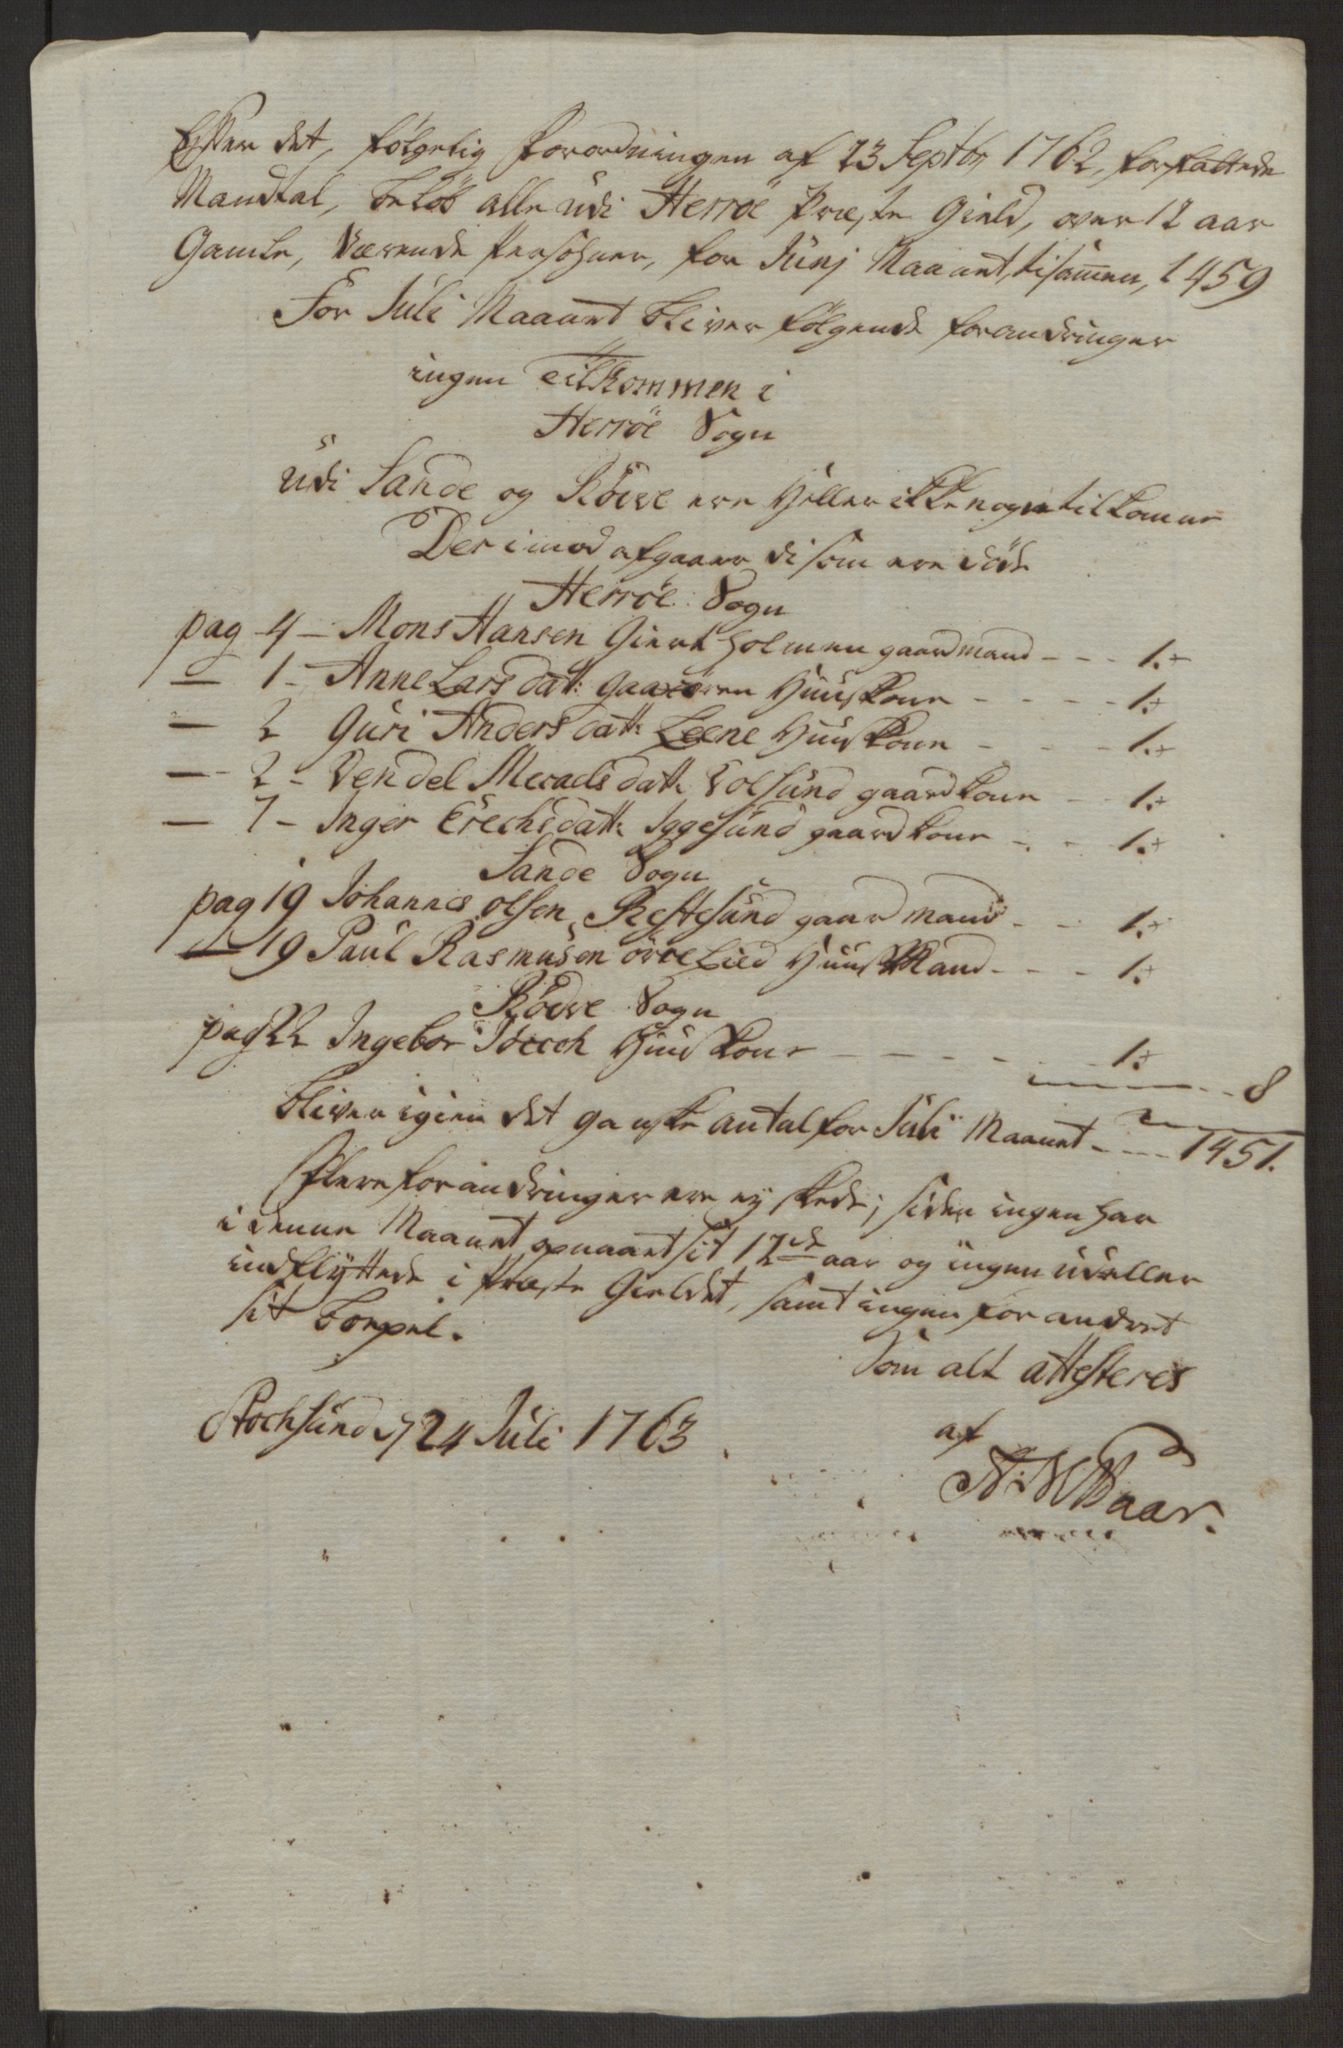 Efter det, følgelig Forordningen af 23 Septbr 1762, forfattede
Mandtal, beløb alle udi Herröe Præste Gield, over 12 aar
Gamle, Værende Persohner, for Junj Maanet, tilsamen, 1459
For Juli Maanet bliver følgende forandringer
ingen Tilkommen i
Herröe Sogn
Udi Sande og Röeve ere heller ikke nogen tilkomne
Derimod afgaaer di som ere döde
Herröe Sogn
pag 4 - Mons Hansen Giertholmen gaardmand - - - 1.
— 1 - Anne Larsdatt: huuskone - - - - 1.
— 2 Guri Andersdatt: Leene huuskone - - - 1.
— 2 - Vendel datt: Volsund gaardkone - - 1.
— 7 - Inger Erechsdatt: Iggesund gaardkone - - - 1.
Sande Sogn
pag 19 Johannes olsen Kestesund gaardmand - - - 1.
— 19 Paul Rasmusen huusmand - - - 1.
Röeve Sogn
pag 22 Ingebor huuskone - - - - - 1.
- - 8
bliver igien det ganske antal for Juli Maanet - - - 1451.
Flere forandringer ere ej skede; siden ingen har
i denne Maanet opnaaet sit 12de aar og ingen ud eller
indflyttede i Præste Gieldet, samt ingen forandret
sit
Som alt attesteres
Stochsund d 24 Juli 1763
af